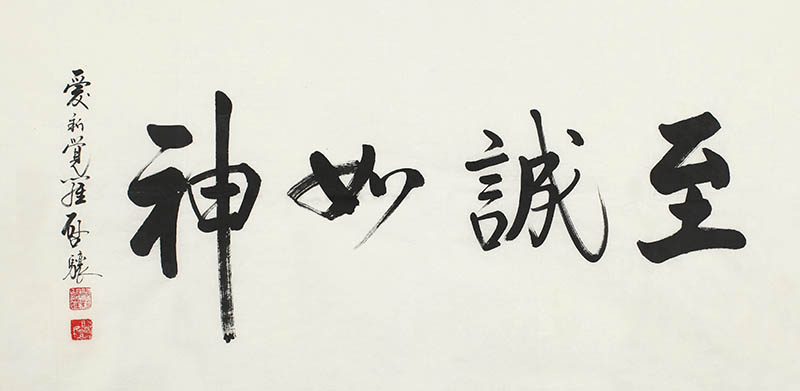 至誠如神
愛新覺羅啓驤